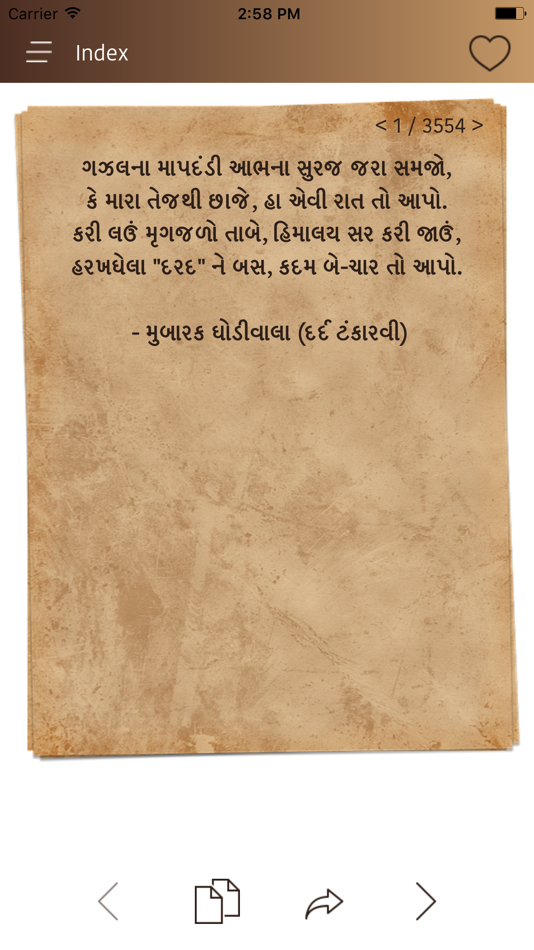 Carrier 2:58 PM
Index
< 1 / 3554 >
ગઝલના માપદંડી આભના સુરજ જરા સમજો,
કે મારા તેજથી છાજે, હા એવી રાત તો આપો.
કરી લઉં મૃગજળો તાબે, હિમાલય સર કરી જાઉં,
હરખઘેલા "દરદ" ને બસ, કદમ બે-ચાર તો આપો.
- મુબારક ઘોડીવાલા (દર્દ ટંકારવી)